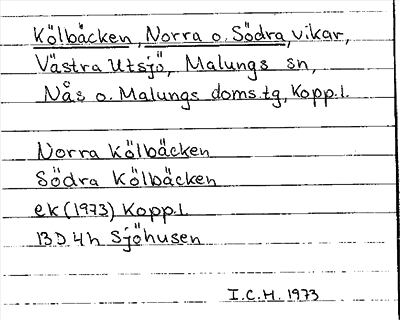 Kölbäcken, Norra o. Södra, vikar,
Västra Utsjö, Malungs sn,
Nås o. Malungs doms.tg, Kopp.l.
Norra Kölbäcken
Södra Kölbäcken
ek (1973) Kopp.l.
13D 4h Sjöhusen
I.C.H. 1973